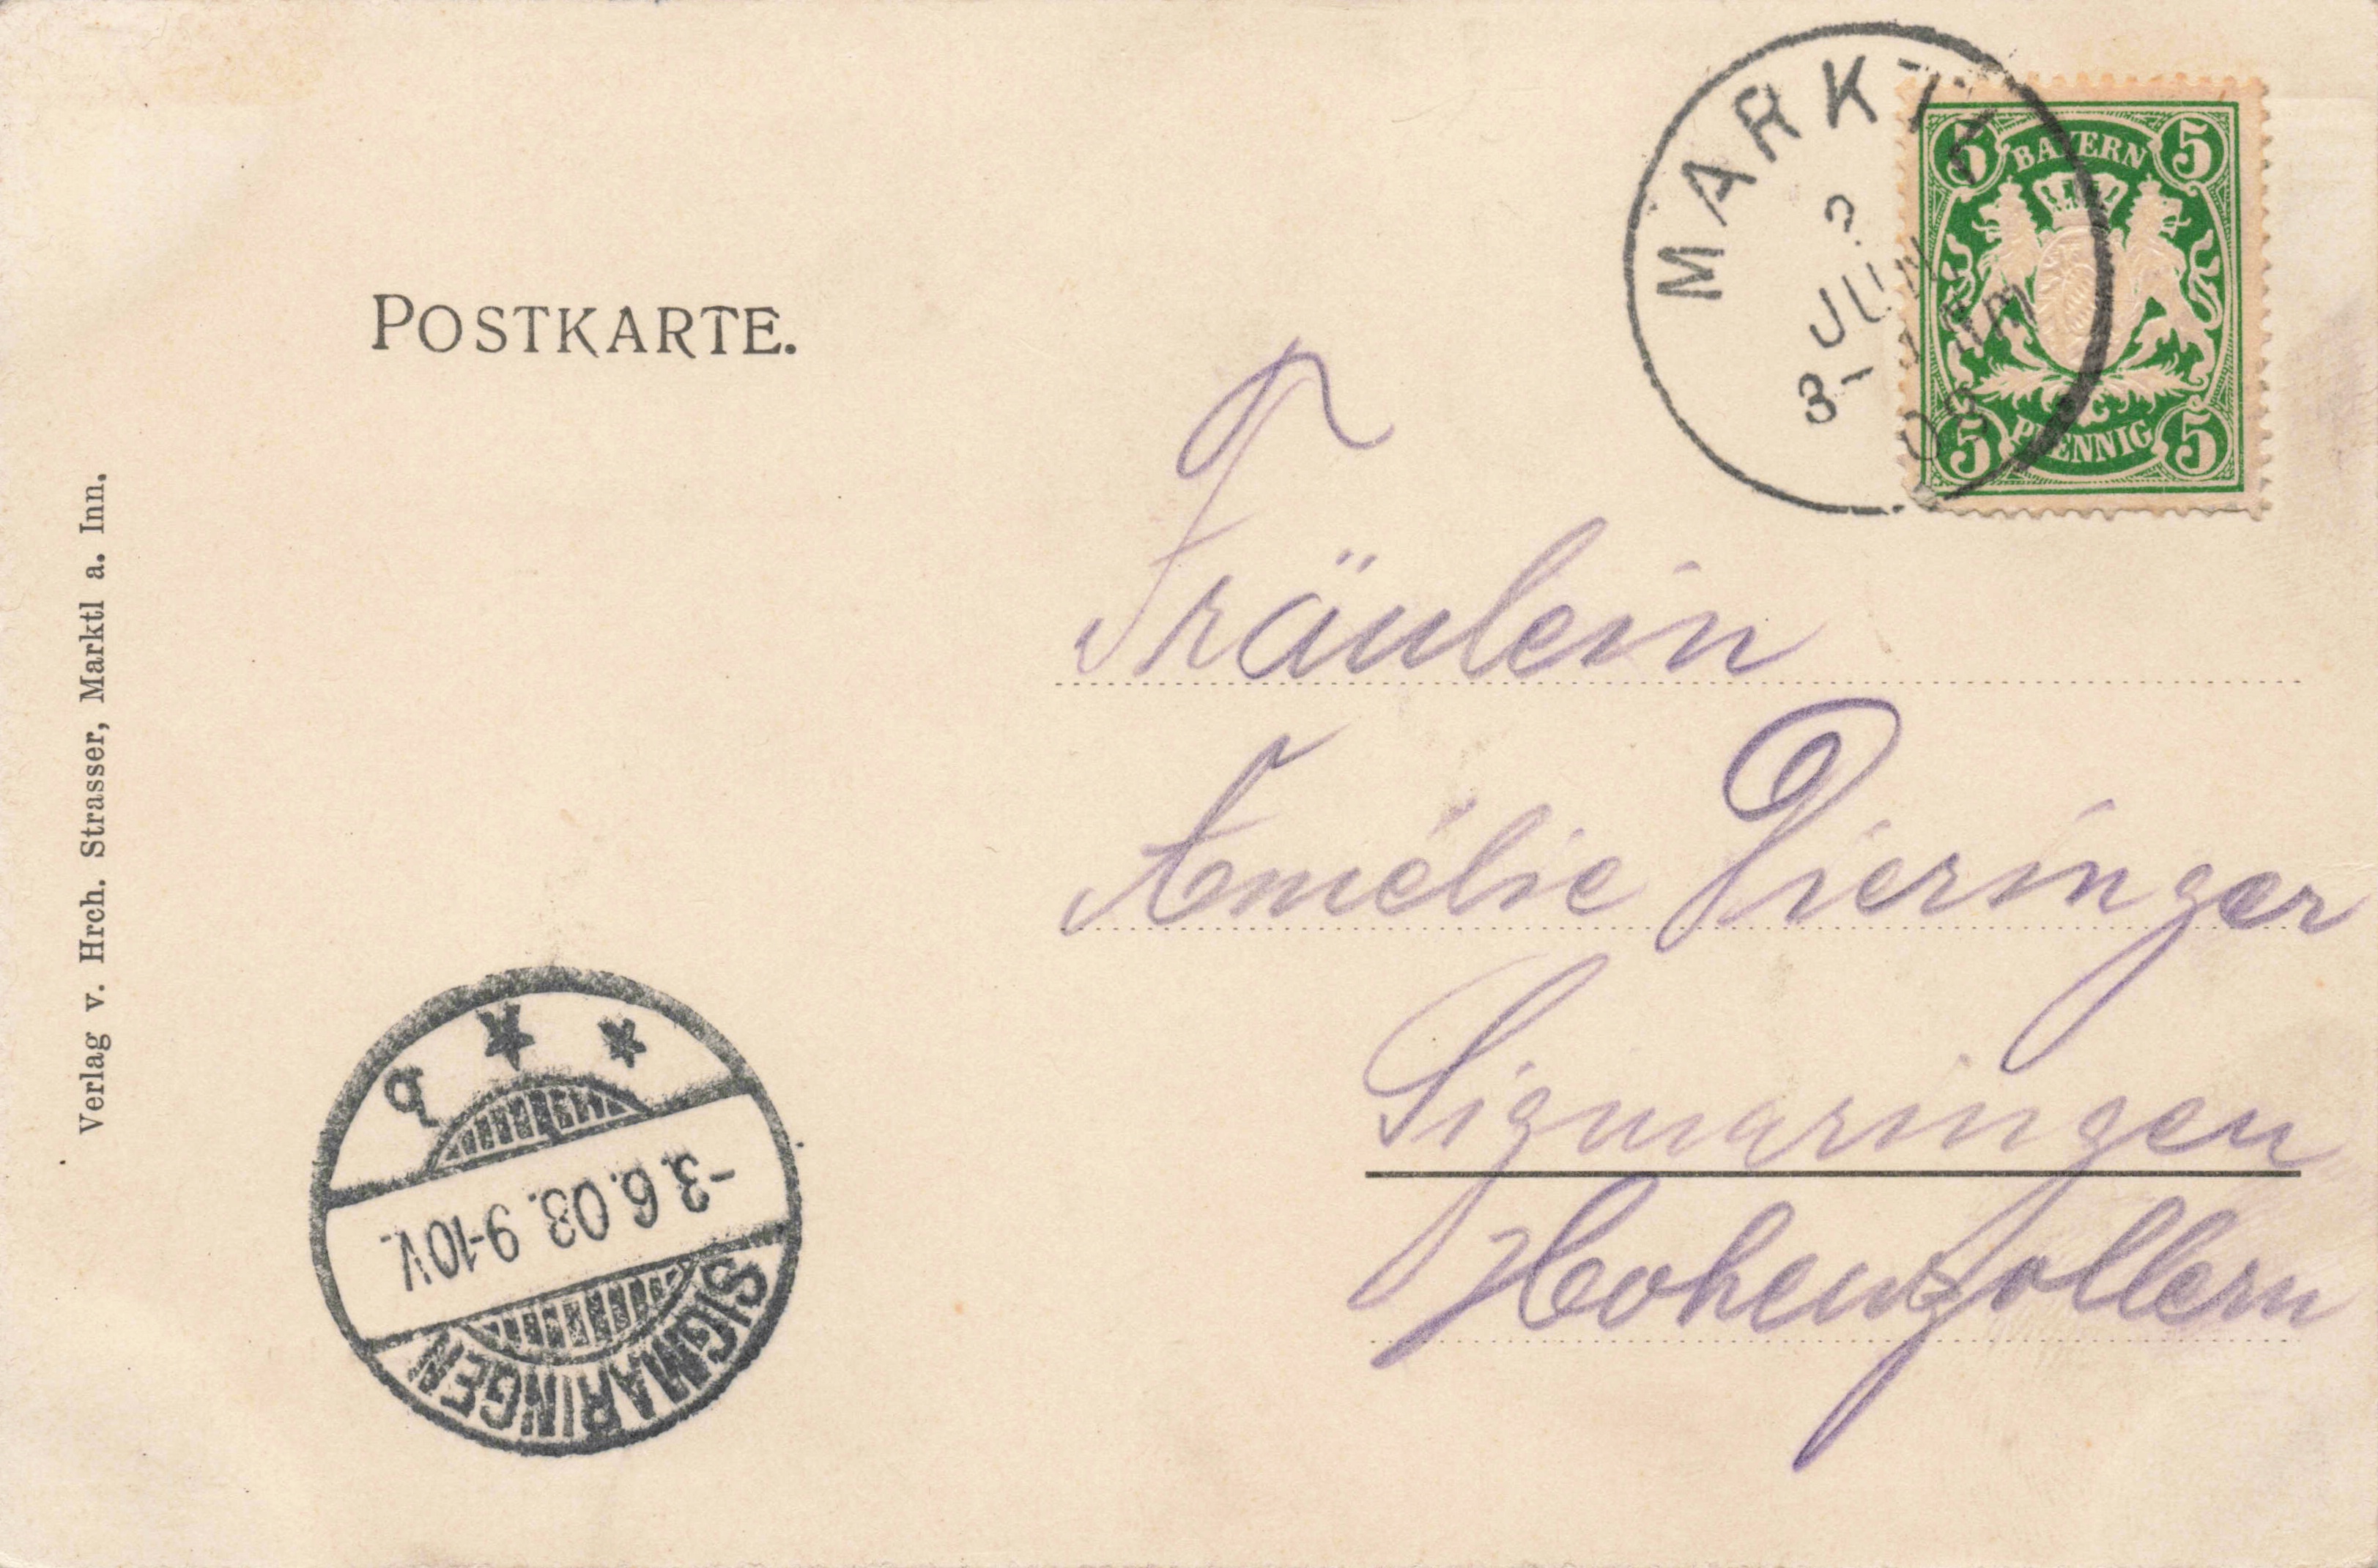 POSTKARTE.
MARKTL
2
JUN
3-4 NM
03
5 BAYERN 5
5 PFENNIG 5
Fräulein
Amélie Dieringer
Sigmaringen
Hohenzollern
Verlag v. Hrch. Strasser, Marktl a. Inn.
SIGMARINGEN
-3.6.03. 9-10V.
* *